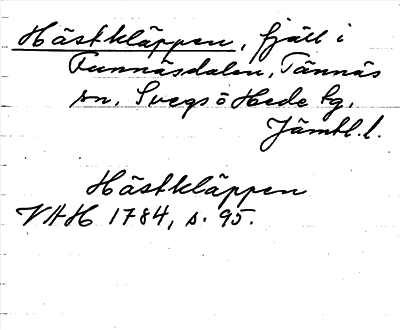 Hästkläppen, fjäll i
Funnäsdalen, Tännäs
sn, Svegs o Hede tg,
Jämtl. l.
Hästkläppen
VAH 1784, s. 95.